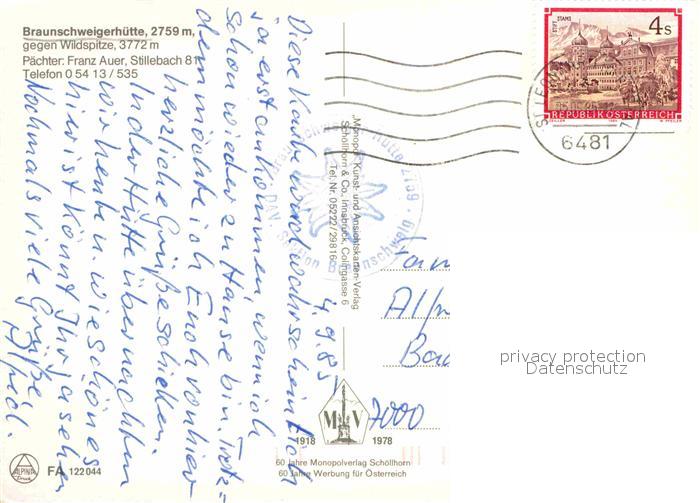 Braunschweigerhütte, 2759 m,
gegen Wildspitze, 3772 m
Pächter: Franz Auer, Stillebach 81
Telefon 0 54 13 / 535
Diese Karte wird wahrscheinlich
ja erst ankommen, wenn ich
schon wieder zu Hause bin. Trotz=
dem möchte ich Euch von hier
herzliche Grüße schicken.
In der Hütte übernachten
wir heute. Wie schön es
hier ist könnt Ihr ja sehen
Nochmals viele Grüße
Alfred.
4.9.85
"Monopol" Kunst- und Ansichtskarten-Verlag
Schöllhorn & Co., Innsbruck, Colingasse 6
Tel. Nr. 05222/29816
Braunschweiger Hütte 2759
DAV Sektion Braunschweig
STIFT STAMS
4 S
REPUBLIK ÖSTERREICH
6481
Fam
Bad
7000
privacy protection
Datenschutz
M V
1918 1978
60 Jahre Monopolverlag Schöllhorn
60 Jahre Werbung für Österreich
ALPINA
Druck
FA 122044